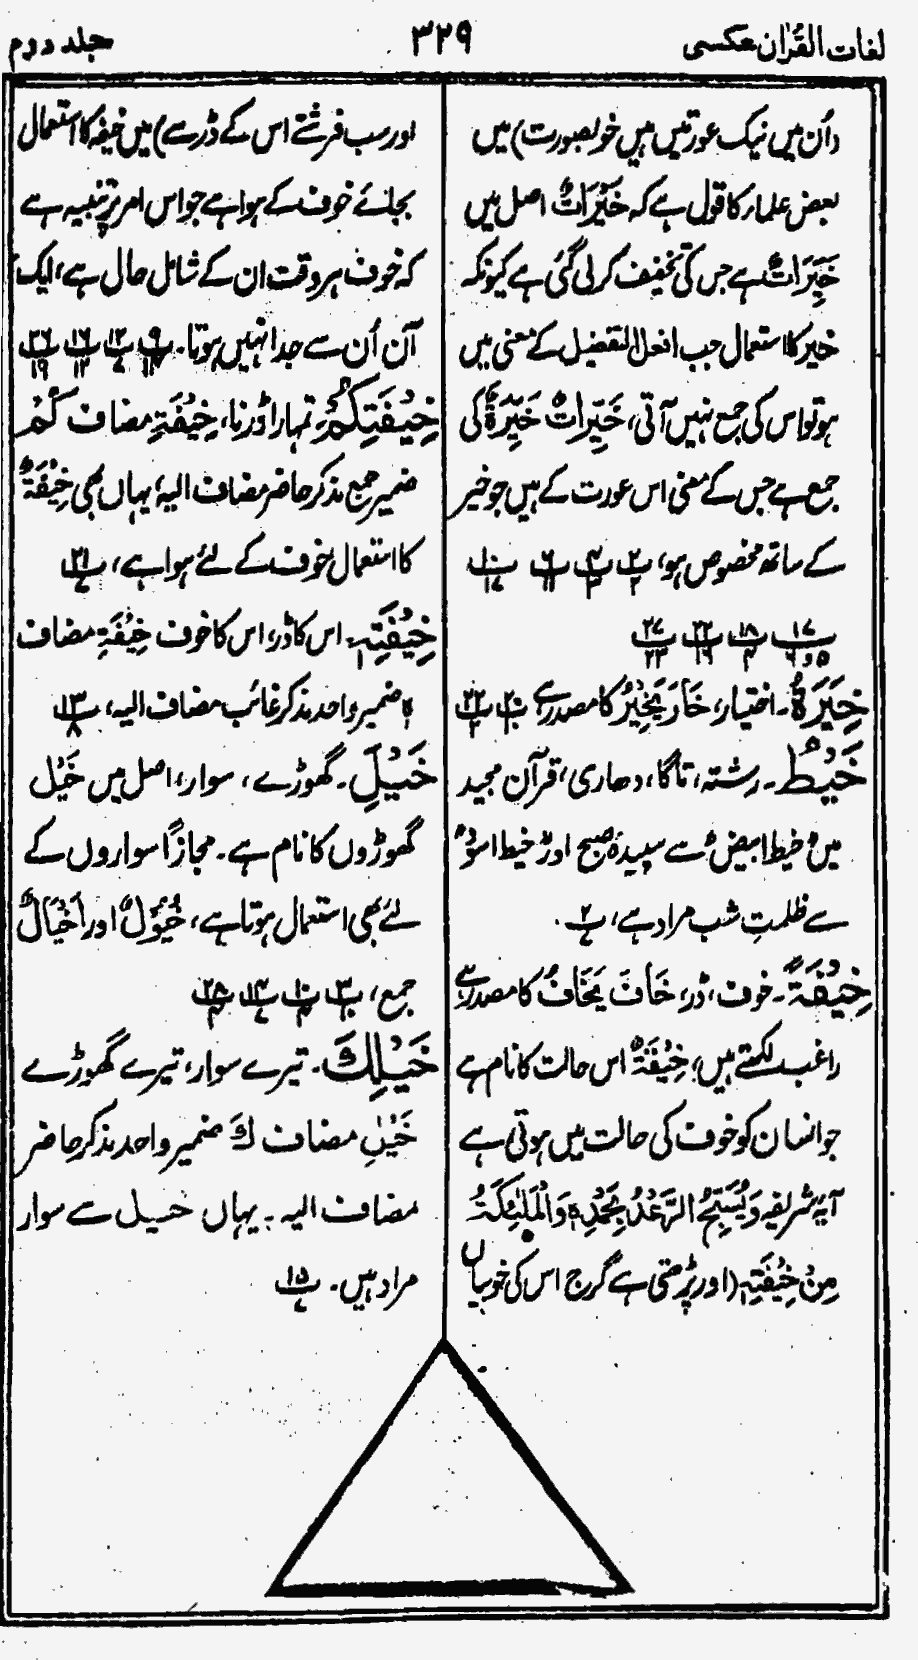 لغات القرآن عکسی
۳۲۹
جلد دوم
(اُن میں نیک عورتیں ہیں خوبصورت) میں
بعض علماء کا قول ہے کہ خَیْرَاتٌ اصل میں
خَیِّرَاتٌ ہے جس کی تخفیف کرلی گئی ہے کیونکہ
خیر کا استعمال جب افعل التفضیل کے معنی میں
ہو تو اس کی جمع نہیں آتی، خَیِّرَاتٌ خَیِّرَةٌ کی
جمع ہے جس کے معنی اس عورت کے ہیں جو خیر
کے ساتھ مخصوص ہو،
خِیَرَةُ۔ اختیار، خَارَ یَخِیْرُ کا مصدر ہے
خَیْطُ۔ رشتہ، تاگا، دھاری، قرآن مجید
میں خیط ابیض سے سپیدۂ صبح اور خیط اسود
سے ظلمتِ شب مراد ہے،
خِیْفَةً۔ خوف، ڈر، خَافَ یَخَافُ کا مصدر ہے
راغب لکھتے ہیں، خِیْفَةٌ اس حالت کا نام ہے
جو انسان کو خوف کی حالت میں ہوتی ہے
آیۂ شریفہ وَیُسَبِّحُ الرَّعْدُ بِحَمْدِهٖ وَالْمَلٰٓئِکَةُ
مِنْ خِیْفَتِهٖ (اور پڑھتی ہے گرج اس کی خوبیاں
اور سب فرشتے اس کے ڈر سے) میں خیفہ کا استعمال
بجائے خوف کے ہوا ہے جو اس امر پر تنبیہ ہے
کہ خوف ہر وقت ان کے شامل حال ہے، ایک
آن اُن سے جدا نہیں ہوتا۔
خِیْفَتِکُمْ۔ تمہارا ڈرنا، خِیْفَةِ مضاف کُمْ
ضمیر جمع مذکر حاضر مضاف الیہ، یہاں بھی خِیْفَةٌ
کا استعمال خوف کے لئے ہوا ہے،
خِیْفَتِهٖ۔ اس کا ڈر، اس کا خوف خِیْفَةِ مضاف
ہٖ ضمیر واحد مذکر غائب مضاف الیہ،
خَیْلَ۔ گھوڑے، سوار، اصل میں خَیْل
گھوڑوں کا نام ہے۔ مجازًا سواروں کے
لئے بھی استعمال ہوتا ہے، خُیُوْلٌ اور اَخْیَالٌ
جمع،
خَیْلِكَ۔ تیرے سوار، تیرے گھوڑے
خَیْلِ مضاف كَ ضمیر واحد مذکر حاضر
مضاف الیہ۔ یہاں خیل سے سوار
مراد ہیں۔